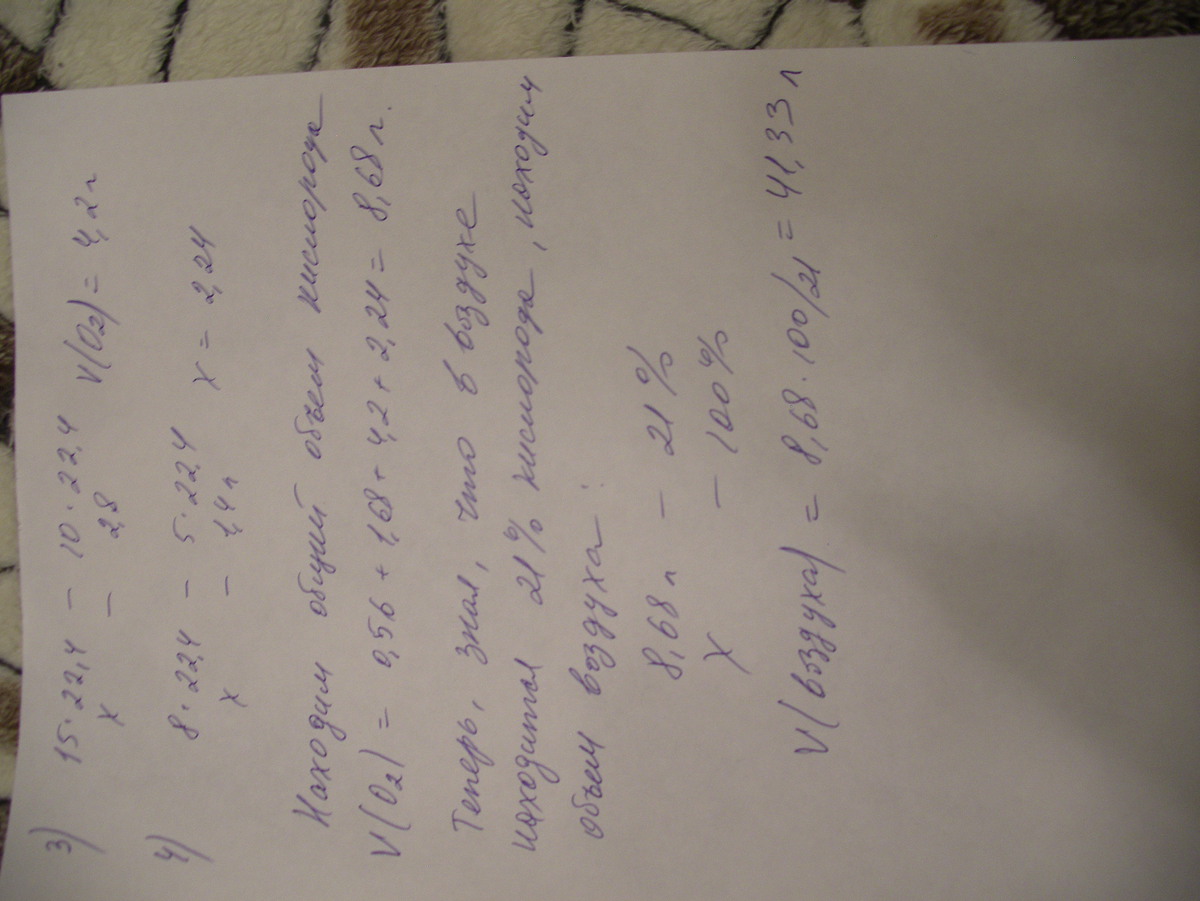 3) 15·22,4 – 10·22,4 V(O2) = 4,2 л
x – 2,8
4) 8·22,4 – 5·22,4 x = 2,24
x – 1,4 л
Находим общий объем кислорода
V(O2) = 0,56 + 1,68 + 4,2 + 2,24 = 8,68 л.
Теперь, зная, что в воздухе
находится 21% кислорода, находим
объем воздуха:
8,68 л – 21%
x – 100%
V(воздуха) = 8,68·100/21 = 41,33 л